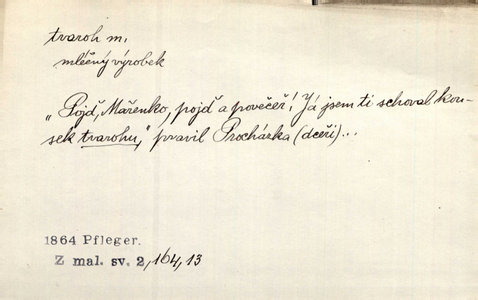 tvaroh m.
mléčný výrobek
„Pojď, Mařenko, pojď a povečeř! Já jsem ti schoval kou-
sek tvarohu," pravil Procházka (dceři)...
1864 Pfleger.
Z mal. sv. 2, 164, 13